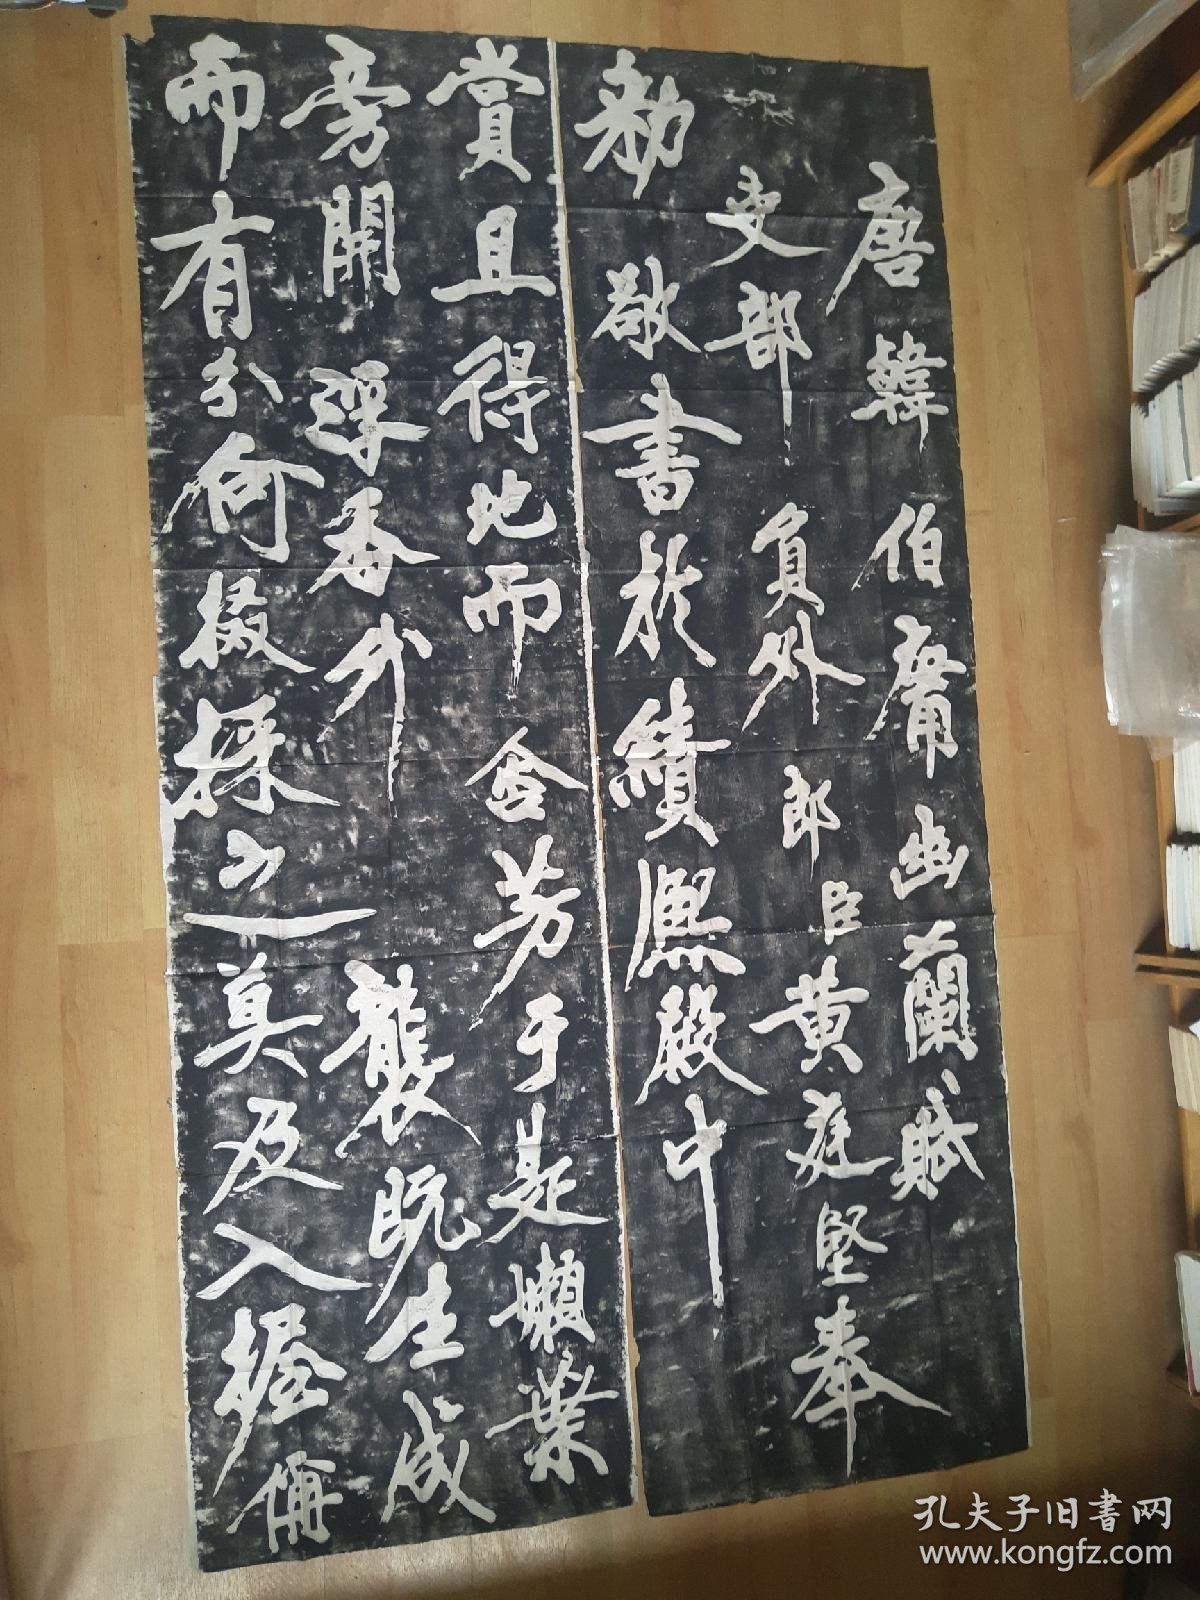 唐韓伯庸幽蘭賦
吏部員外郎臣黃庭堅奉
勅敬書於績熙殿中
賞且得地而含芳于是嫩葉
旁開浮香外襲既生成
而有分何掇採之莫及入握偁
孔夫子旧書网
www.kongfz.com